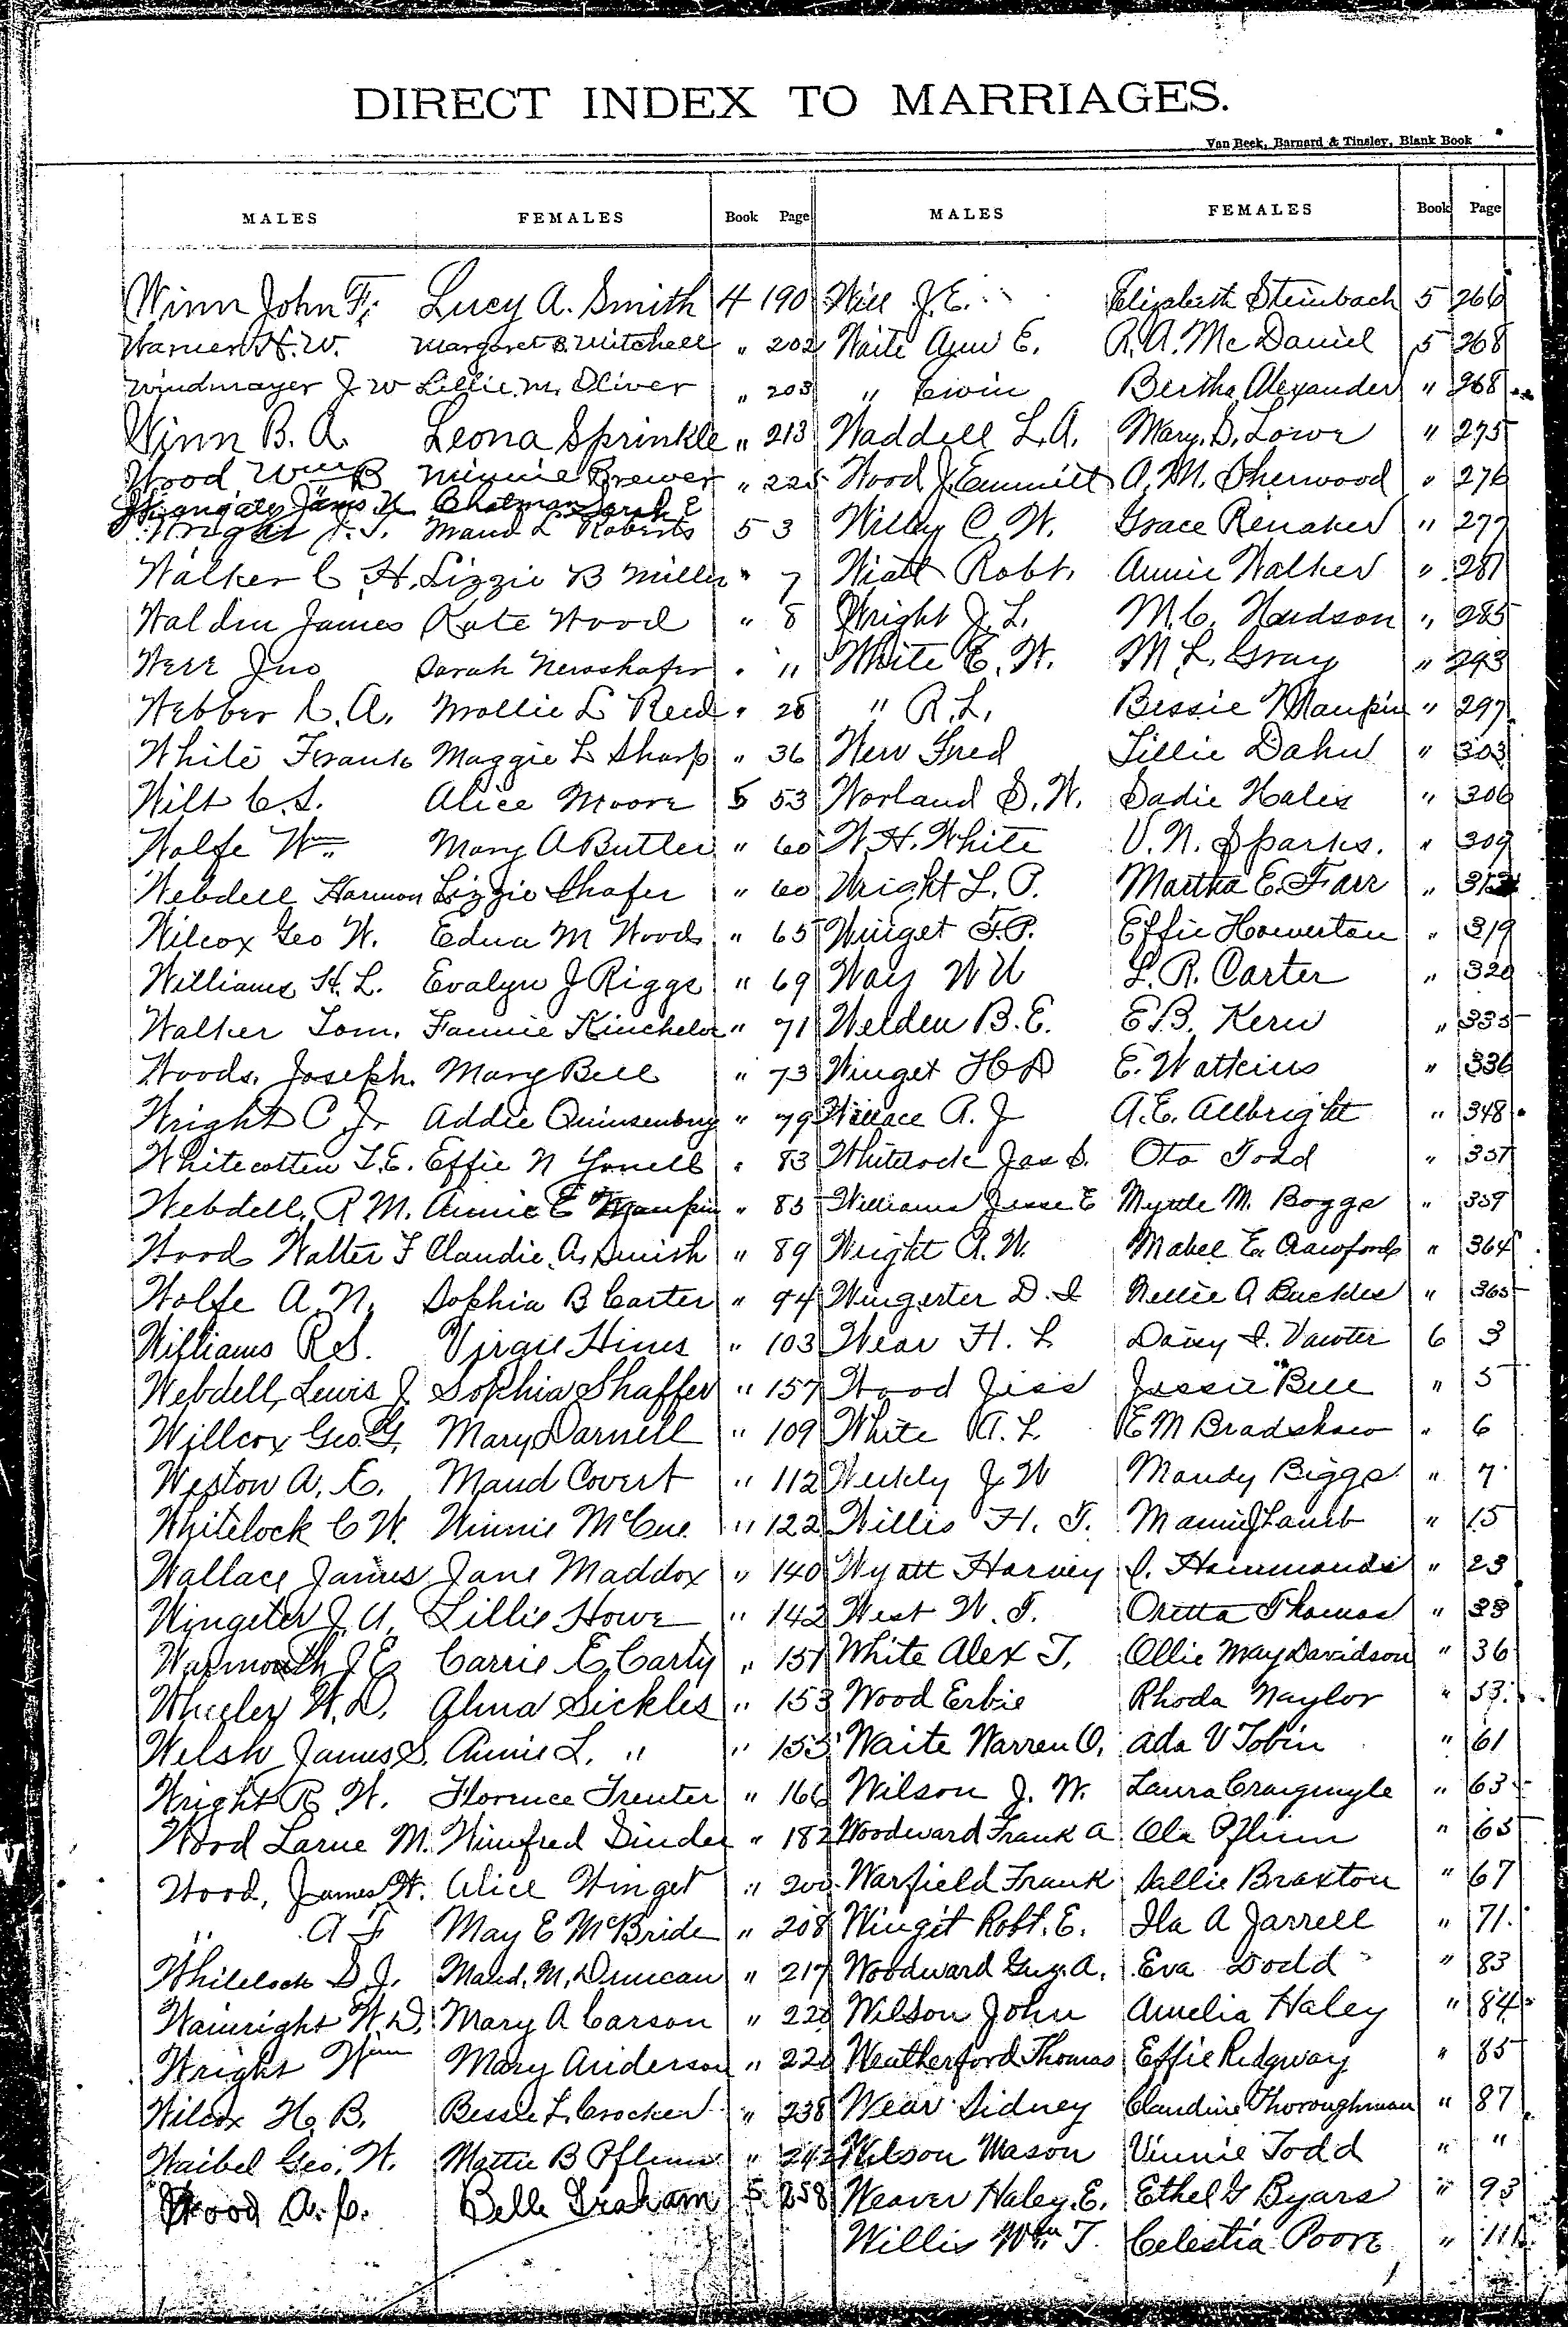 DIRECT INDEX TO MARRIAGES.
Van Beek, Barnard & Tinsley, Blank Book
MALES FEMALES Book Page MALES FEMALES Book Page
Winn John F. Lucy A. Smith 4 190 Will J.E. Elizabeth Steinbach 5 266
Warner H.W. Margaret B. Mitchell " 202 Waite E. R.A. McDaniel 5 268
Windmayer J W Lillie M. Oliver " 203 " Ewin Bertha Alexander " 268
Winn B. A. Leona Sprinkle " 213 Waddell L.A. Mary. D. Lowe " 275
Wood Wm B Minnie Brewer " 225 Wood J. Emmitt A. M. Sherwood " 276
James Chatman Sarah E
Wright J.T. Maud L Roberts 5 3 Willby C. W. Grace Renaker " 277
Walker C. H. Lizzie B Miller " 7 Wiatt Robt. Annie Walker " 281
Waldin James Kate Wood " 8 Wright J. L. M.C. Hudson " 285
Werr Jno Sarah Newshafer " 11 White E. W. M L. Gray " 293
Webber L. A. Mollie L Reed " 28 " R.L. Bessie Maupin " 297
White Frank Maggie L Sharp " 36 Werr Fred Tillie Dahn " 303
Wilt C.S. Alice Moore 5 53 Worland S. W. Sadie Hales " 306
Wolfe Wm Mary A Butler " 60 W.H. White V. N. Sparks. " 309
Webdell Harmon Lizzie Shafer " 60 Wright L. P. Martha E. Farr "
Wilcox Geo W. Edna M Woods " 65 Winget F.P. Effie Howerton " 319
Williams H. L. Evalyn J Riggs " 69 Ways W U L. R. Carter " 320
Walker Tom. Fannie Kincheloe " 71 Welden B. E. E.B. Kern " 335
Woods, Joseph. Mary Bell " 73 Winget H D E. Watkins " 336
Wright C. J. Addie Quinsenbury " 79 Wallace A. J A.E. Allbright " 348
Whitecotten T.E. Effie N Yowell " 83 Whitelock Jas S. Ota Todd " 357
Webdell, P M. Annie E Maupin " 85 Williams Jesse E Myrtle M. Boggs " 359
Wood Walter F Claudie A. Smish " 89 Wright R. W. Mabel E. Crawford " 364
Wolfe A. N. Sophia B Carter " 94 Wingerter D. I Nellie A Buckles " 365
Williams R.S. Virgie Hines " 103 Wear H. L Daisy I. Vawter 6 3
Webdell, Lewis J. Sophia Shaffer " 157 Wood Jess Jessie Bell " 5
Willcox Geo. G. Mary Darnell " 109 White A. L E M Bradshaw " 6
Weston A. E. Maud Covert " 112 Weekly J W Mandy Biggs " 7
Whitelock C W. Winnie McCue " 122 Willis H. T. Mamie J Lamb " 15
Wallace James Jane Maddox " 140 Wyatt Harvey C. Hammonds " 23
Wingeter J. A. Lillie Howe " 142 West W. T. Oretta Thomas " 33
Warmouth J E Carrie E. Carty " 151 White Alex T. Ollie May Davidson " 36
Wheeler W. D. Alma Sickles " 153 Wood Erbie Rhoda Naylor " 53
Welsh James S. Annie L. " " 155 Waite Warren O. Ada V Tobin " 61
Wright R. W. Florence Trenter " 166 Wilson J. W. Laura Craigmyle " 63
Wood Larue M. Winifred Sinder " 182 Woodward Frank A Ola Pflum " 65
Wood, James W. Alice Winget " 200 Warfield Frank Sallie Braxton " 67
" A F May E McBride " 208 Wingit Robt. E. Ila A Jarrell " 71
Whitelock S J. Maud. M. Duncan " 217 Woodward Guy. A. Eva Dodd " 83
Wainright W.D. Mary A Carson " 220 Wilson John Amelia Haley " 84
Wright Wm Mary Anderson " 220 Weatherford Thomas Effie Ridgway " 85
Wilcox H. B. Bessie L. Crocker " 238 Wear Sidney Claudine Thoroughman " 87
Waibel Geo. W. Mattie B Pflum " 242 Wilson Mason Vinnie Todd " "
Wood A. C. Belle Graham 5 258 Weaver Haley. E. Ethel G Byars " 93
Willis Wm T. Celestia Poore " 111